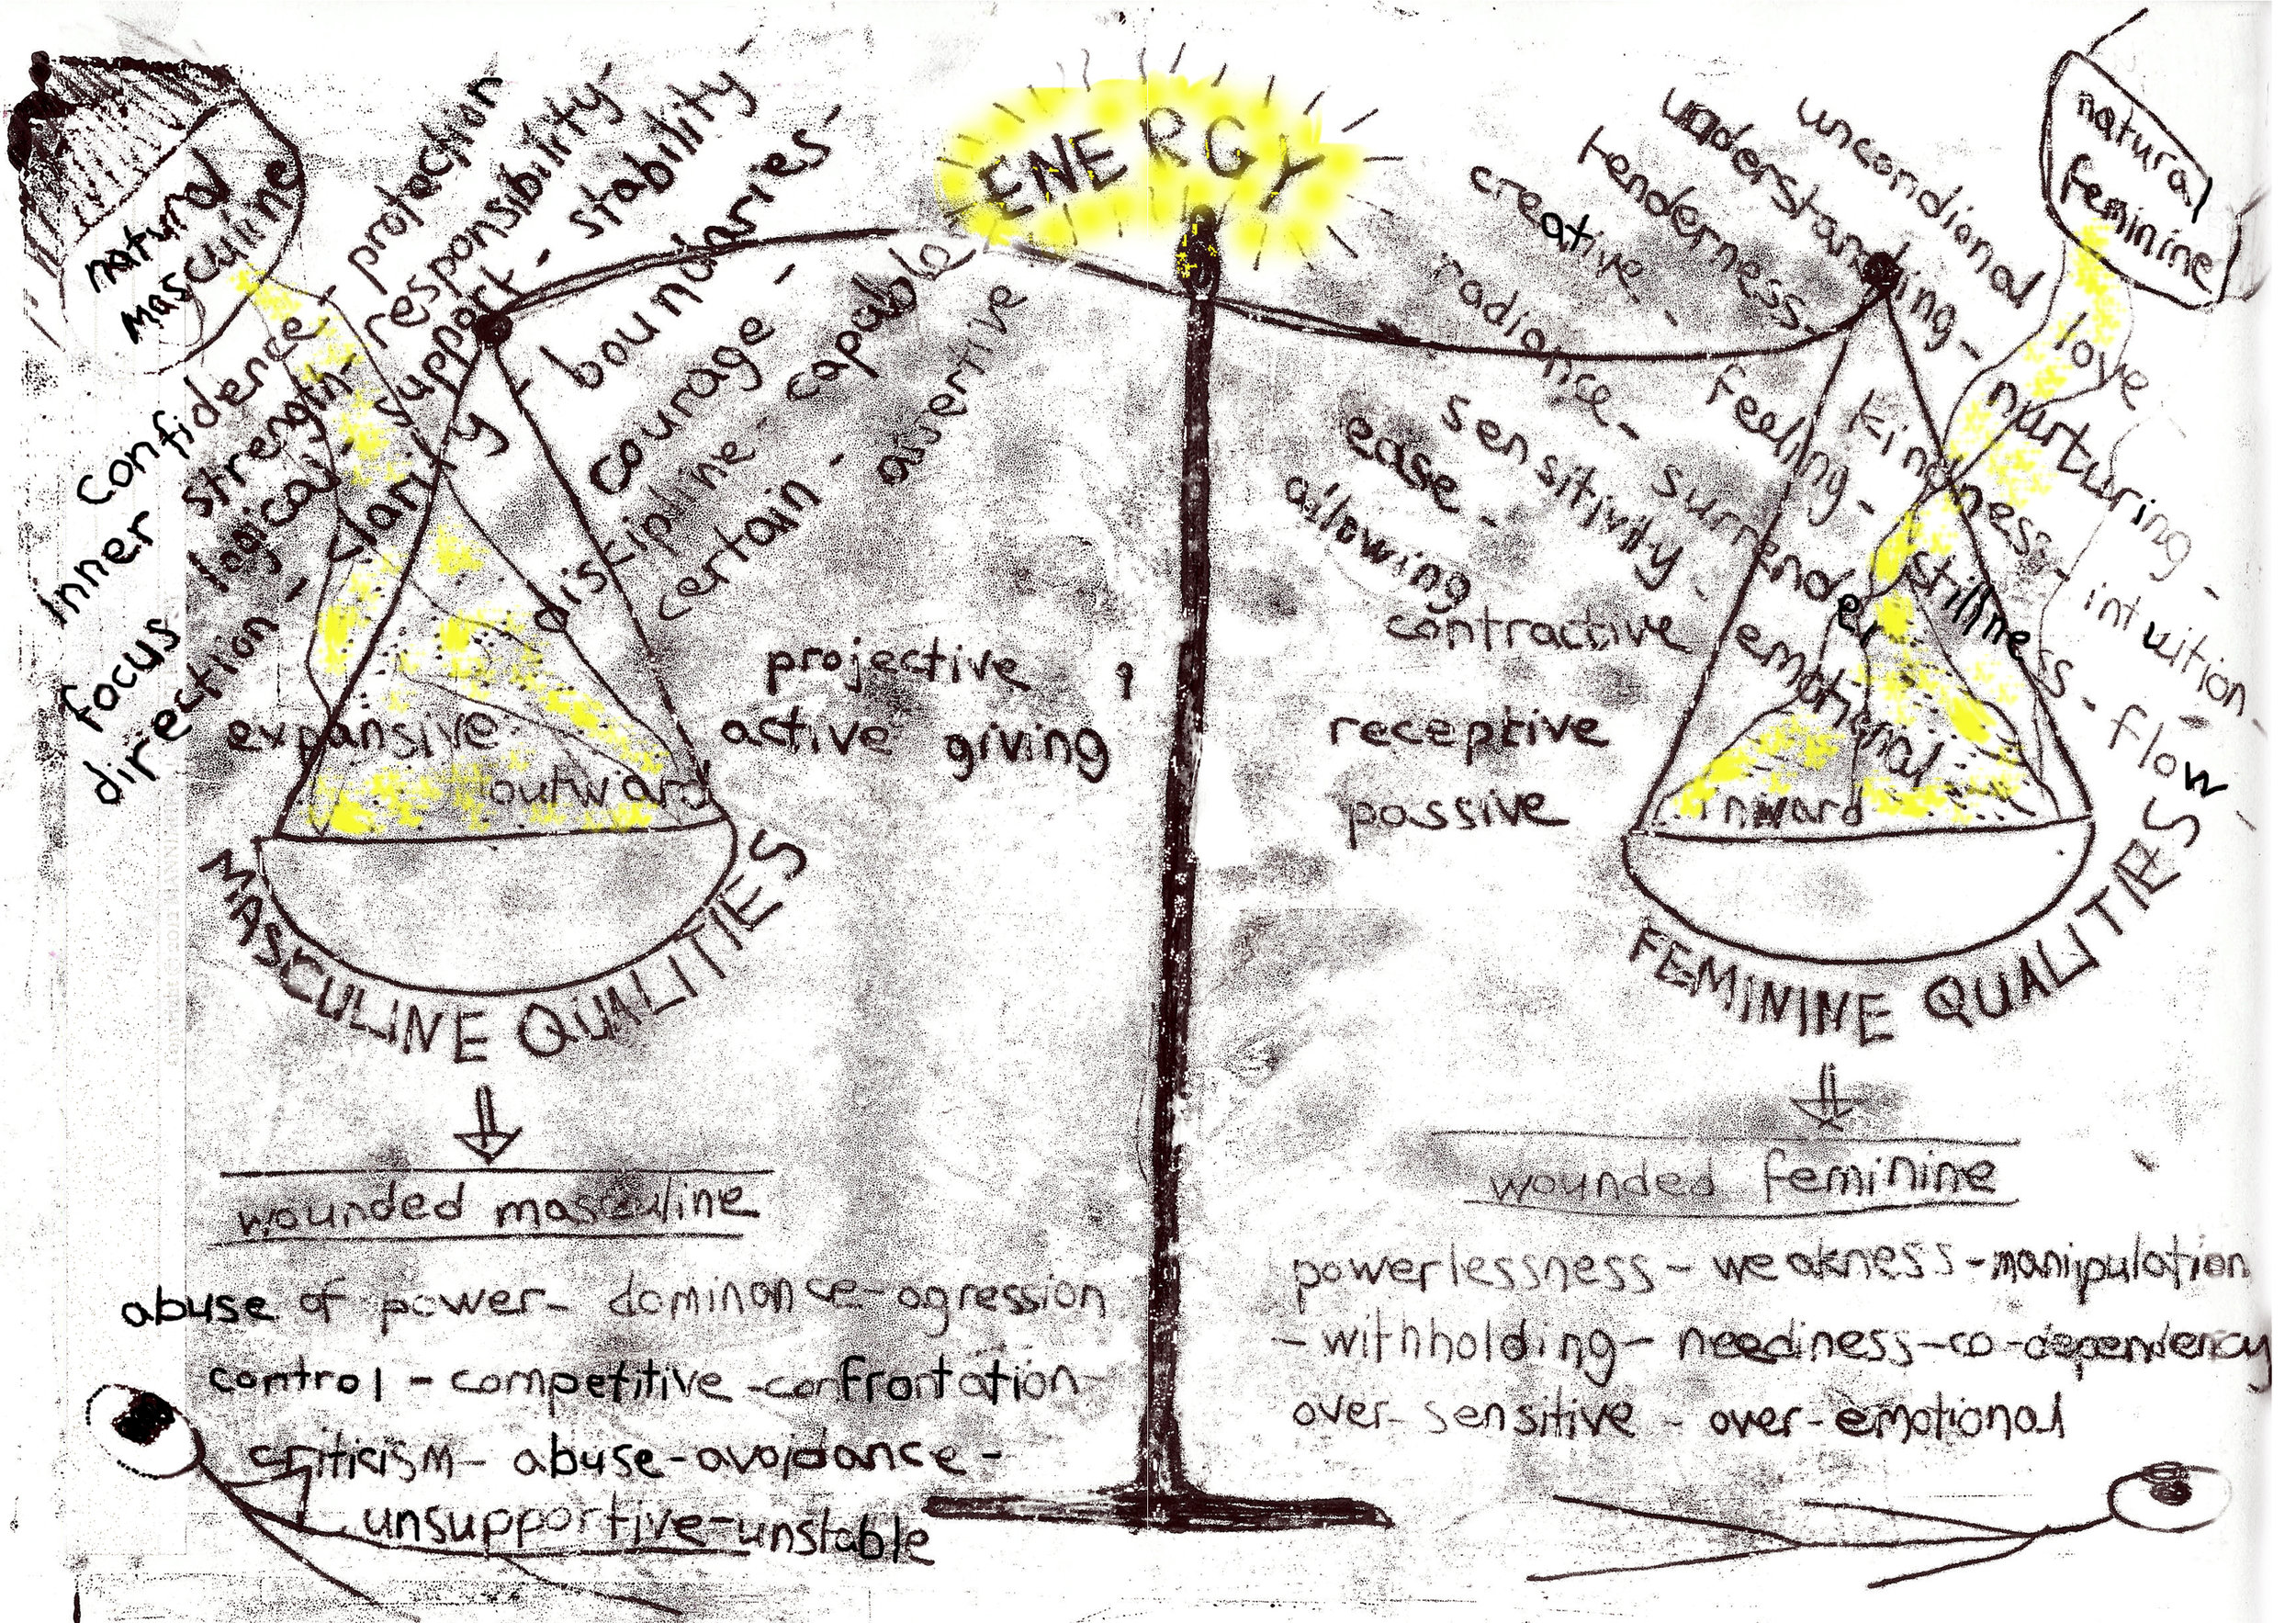 ENERGY
natural
masculine
protection
responsibility -
confidence - strength - support - stability -
Inner
logical - clarity - boundaries -
focus
direction -
courage -
discipline - capable
certain - assertive
expansive
outward
projective,
active giving
MASCULINE QUALITIES
wounded masculine
abuse of power - dominance - agression
control - competitive - confrontation -
criticism - abuse - avoidance -
unsupportive - unstable
natural
feminine
uncondional love -
understanding - nurturing -
tenderness - kindness - intuition -
creative - feeling - stillness - flow -
radiance - surrender
sensitivity - emotional
ease -
allowing
contractive
receptive
passive
inward
FEMININE QUALITIES
wounded feminine
powerlessness - weakness - manipulation
- withholding - neediness - co-dependency
over-sensitive - over-emotional